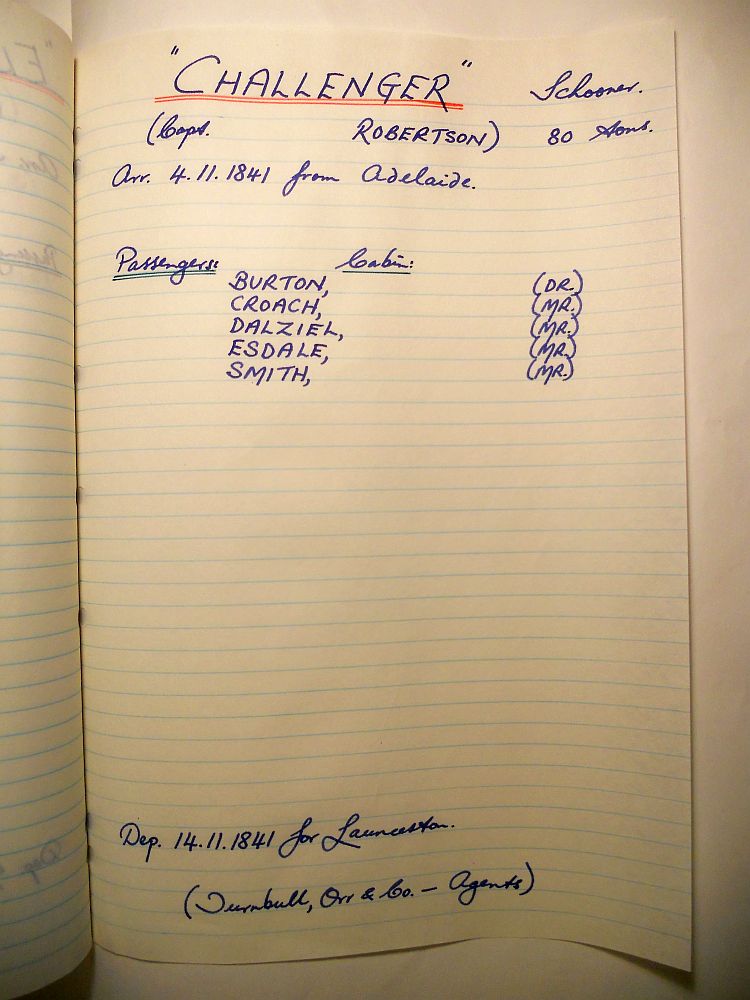 "CHALLENGER" Schooner.
(Capt. ROBERTSON) 80 tons.
Arr. 4.11.1841 from Adelaide.
Passengers: Cabin:
BURTON, (DR.)
CROACH, (MR.)
DALZIEL, (MR.)
ESDALE, (MR.)
SMITH, (MR.)
Dep. 14.11.1841 for Launceston.
(Turnbull, Orr & Co. – Agents)